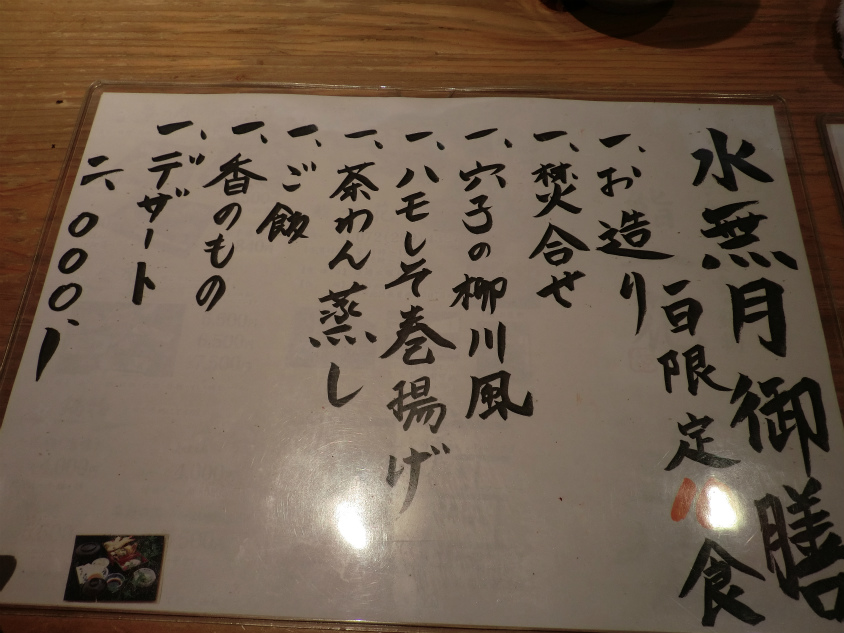 水無月御膳
一日限定八食
一、お造り
一、焚合せ
一、穴子の柳川風
一、ハモしそ巻揚げ
一、茶わん蒸し
一、ご飯
一、香のもの
一、デザート
二、〇〇〇、